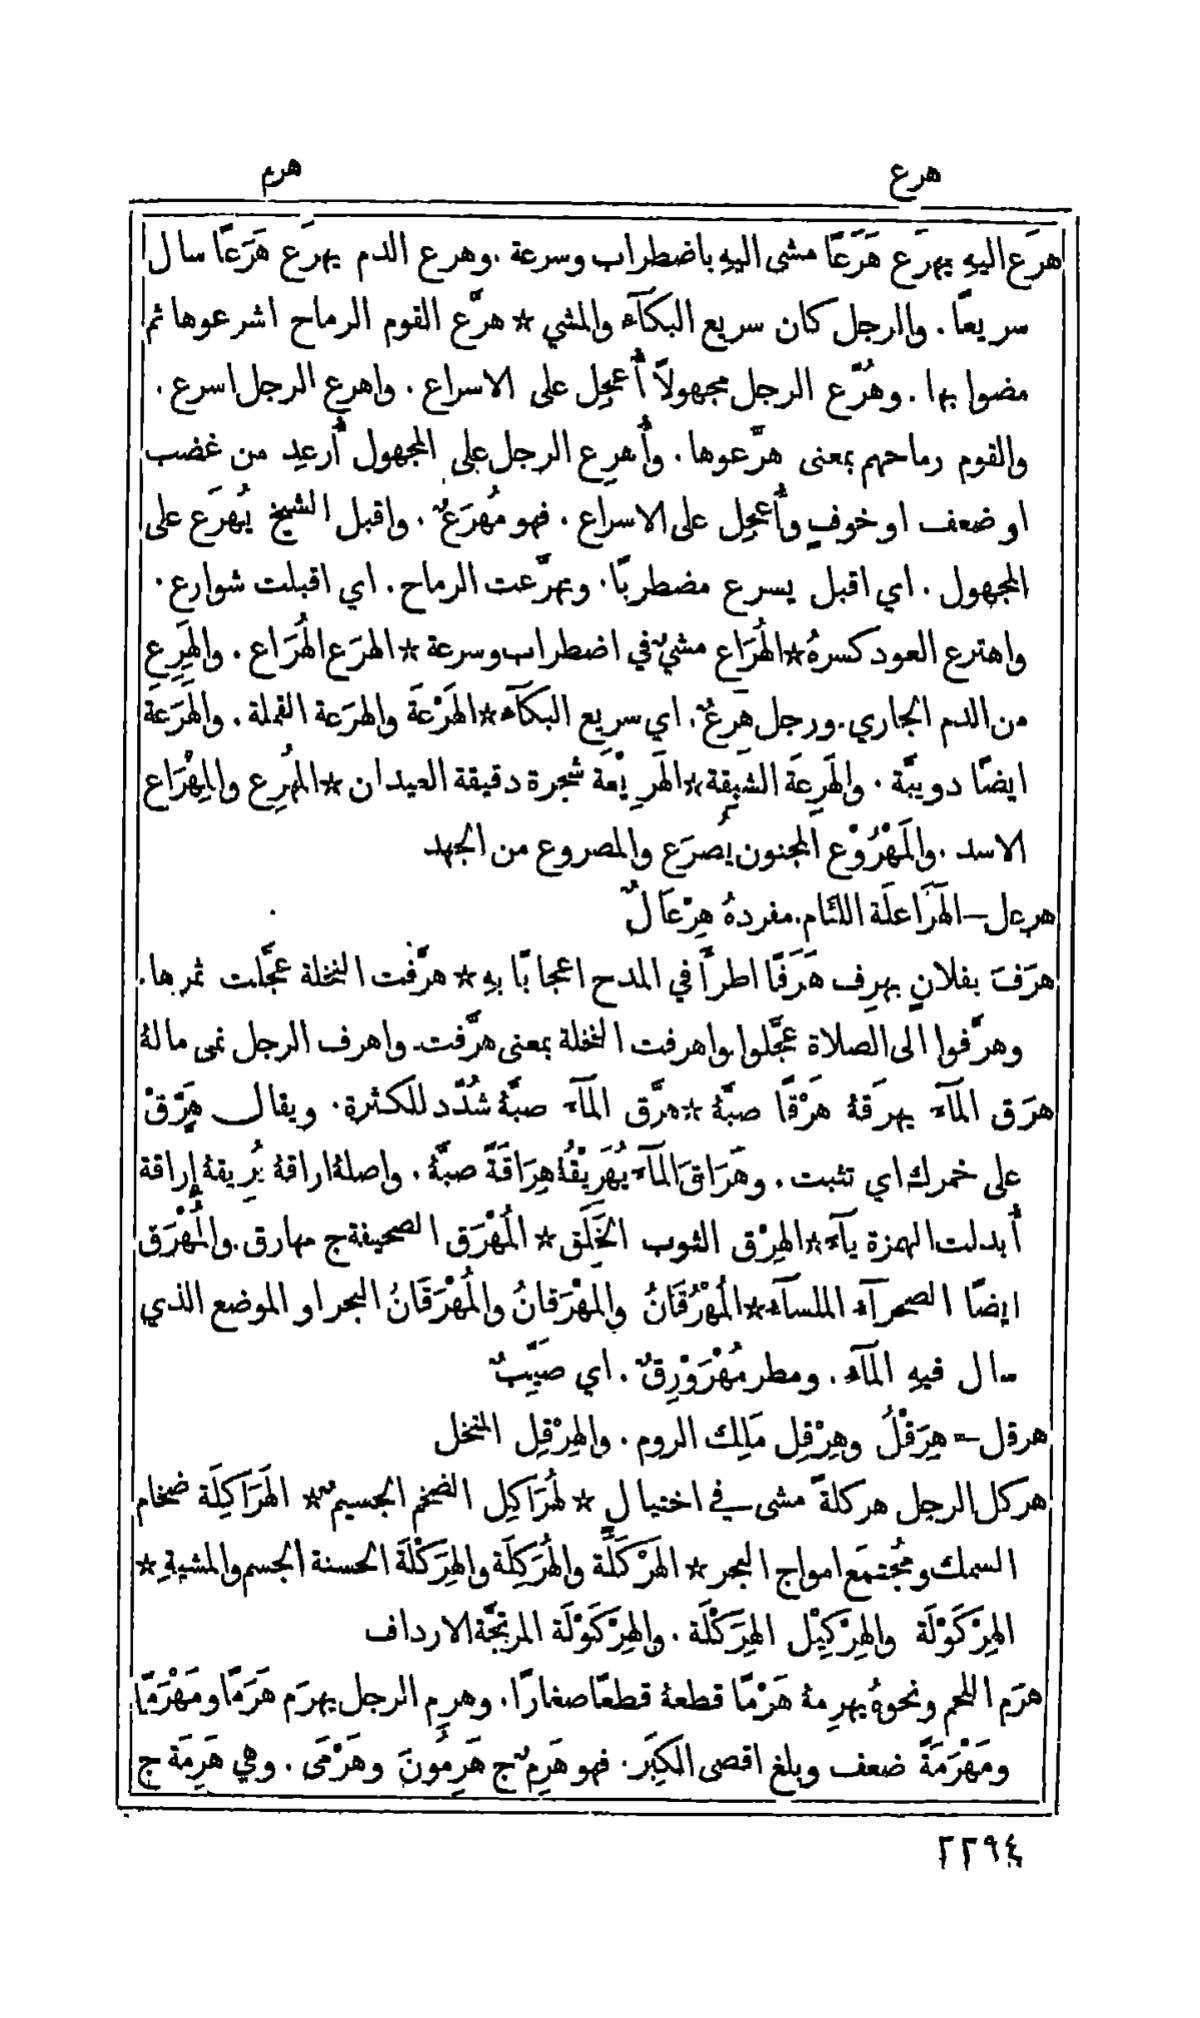 هرع
هرم
هرَع اليهِ يهرَع هَرَعًا مشى اليهِ باضطراب وسرعة . وهرع الدم يهرَع هَرَعًا سال
سريعًا . والرجل كان سريع البكآء والمشي ☆ هرَّع القوم الرماح اشرعوها ثم
مضوا بها . وهُرِّع الرجل مجهولاً أُعجِل على الاسراع . واهرع الرجل اسرع .
والقوم رماحهم بمعنى هرَّعوها . وأُهرِع الرجل على المجهول أُرعِد من غضب
او ضعف او خوفٍ وأُعجِل على الاسراع . فهو مُهرَعٌ . واقبل الشيخ يُهرَع على
المجهول . اي اقبل يسرع مضطربًا . وتهرَّعت الرماح . اي اقبلت شوارع .
واهترع العود كسرهُ ☆ الهُرَاع مشيٌ في اضطراب وسرعة ☆ الهرَع الهُرَاع . والهَرِع
من الدم الجاري . ورجل هَرِعٌ . اي سريع البكآء ☆ الهَرْعَة والهرَعة القملة . والهَرَعَة
ايضًا دويبَّة . والهَرِعَة الشبِقة ☆ الهَرِيْعَة شجرة دقيقة العيدان ☆ المُهرِع والمِهْرَاع
الاسد . والمَهْرُوْع المجنون يُصرَع والمصروع من الجهد
هرعل – الهَرَاعلَة اللئام . مفردهُ هِرْعَالٌ
هرَفَ بفلانٍ يهرِف هَرَفًا اطرأَ في المدح اعجابًا بهِ ☆ هرَّفت النخلة عجَّلت ثمرها .
وهرَّفوا الى الصلاة عجَّلوا واهرفت النخلة بمعنى هرَّفت . واهرف الرجل نمى مالهُ
هرَق المآء يهرقهُ هَرْقًا صبَّهُ ☆ هرَّق المآء صبَّهُ شُدِّد للكثرة . ويقال هَرِّقْ
على خمرك اي تثبت . وهَرَاقَ المآء يُهَرِيْقُهُ هِرَاقَةً صبَّهُ . واصلهُ اراقهُ يُرِيقهُ إراقة
أُبدلت الهمزة يآء ☆ الهِرْق الثوب الخَلَق ☆ المُهْرَق الصحيفة ج مهارق . والمُهْرَق
ايضًا الصحرآء الملسآء ☆ المُهْرُقَانُ والمَهْرَقانُ والمُهْرَقَانُ البحر او الموضع الذي
سال فيهِ المآء . ومطر مُهْرَوْرِقٌ . اي صَيِّبٌ
هرقل = هِرَقْلُ وهِرْقِل مَلِك الروم . والهِرْقِل المنخل
هركل الرجل هركلةً مشى في اختيالٍ ☆ لهُرَاكِل الضخم الجسيم ☆ الهَرَاكِلَة ضخام
السمك ومُجتمَع امواج البحر ☆ الهَرْكَلَة والهُرَكِلَة والهِرَكْلَة الحسنة الجسم والمشيةِ ☆
الهِرْكَوْلَة والهِرْكِيْل الهِرَكْلَة . والهِرْكَوْلَة المرتجَّة الارداف
هرَم اللحم ونحوهُ يهرِمهُ هَرْمًا قطعهُ قطعًا صغارًا . وهرِم الرجل يهرَم هَرَمًا ومَهْرَمًا
ومَهْرَمَةً ضعف وبلغ اقصى الكِبَر . فهو هَرِمٌ ج هَرِمُونَ وهَرْمَى . وهي هَرِمَة ج
٢٢٩٤